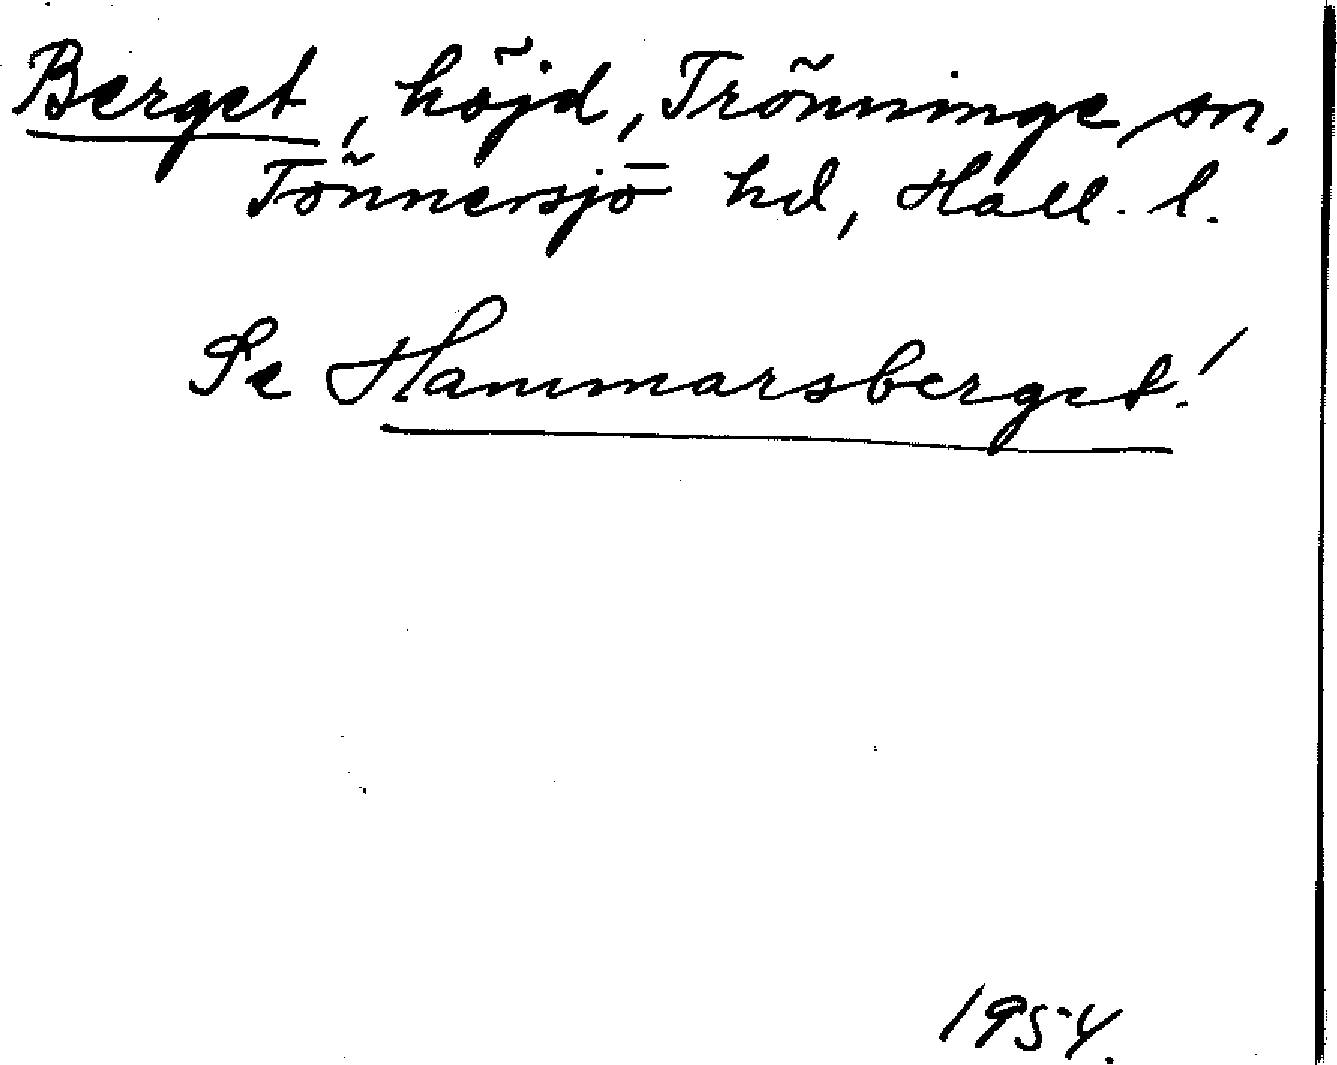 Berget, höjd, Trönninge sn,
Tönnersjö hd, Hall. l.
Se Hammarsberget!
1954.